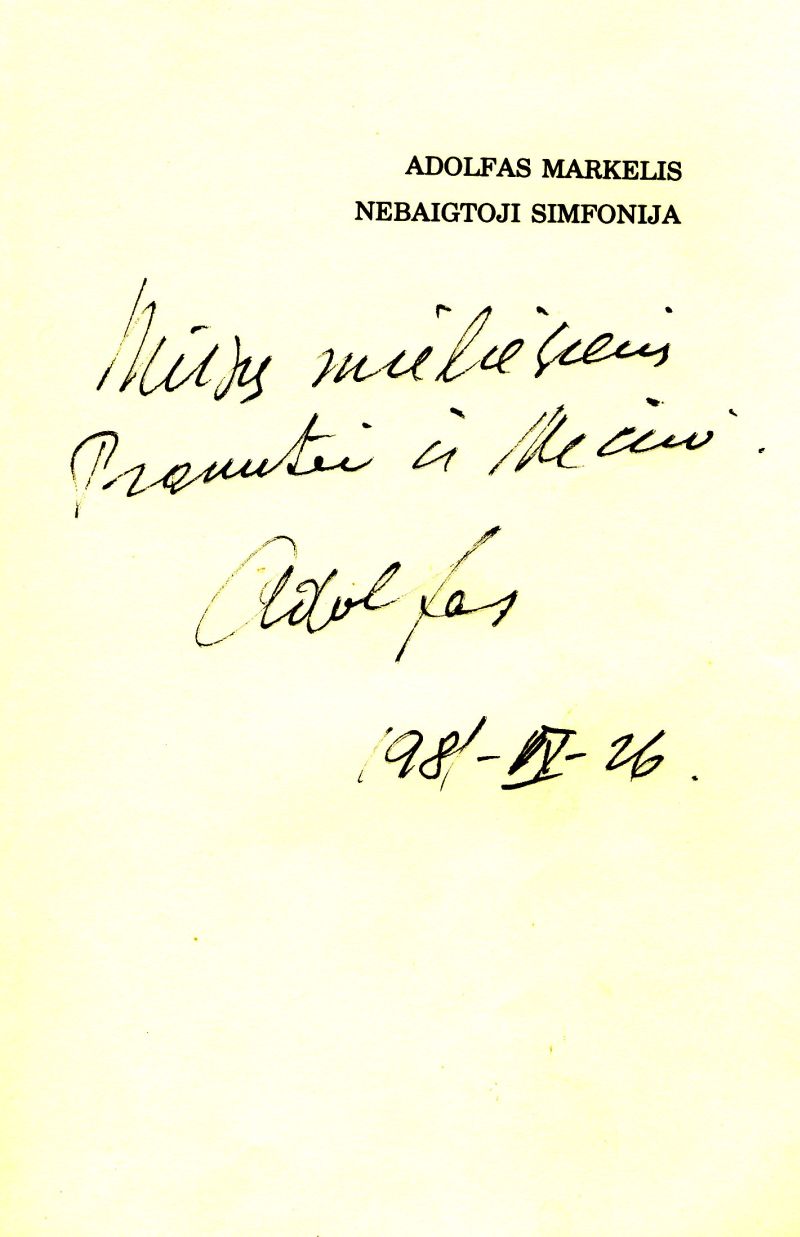 ADOLFAS MARKELIS
NEBAIGTOJI SIMFONIJA
mieliesiems
Pranutei ir Mečiui.
Adolfas
1981-IV-26.